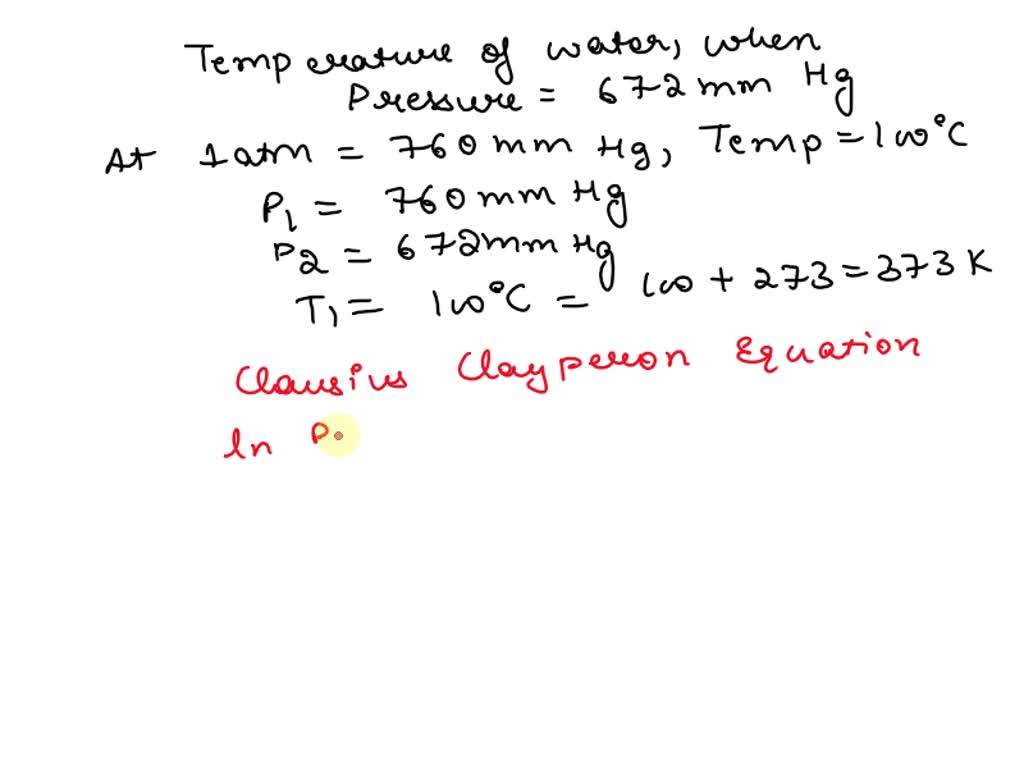 Temperature of water, when
Pressure = 672 mm Hg
At 1 atm = 760 mm Hg, Temp = 100°C
P1 = 760 mm Hg
P2 = 672 mm Hg
T1 = 100°C = 100 + 273 = 373 K
Clausius Clayperon Equation
ln P